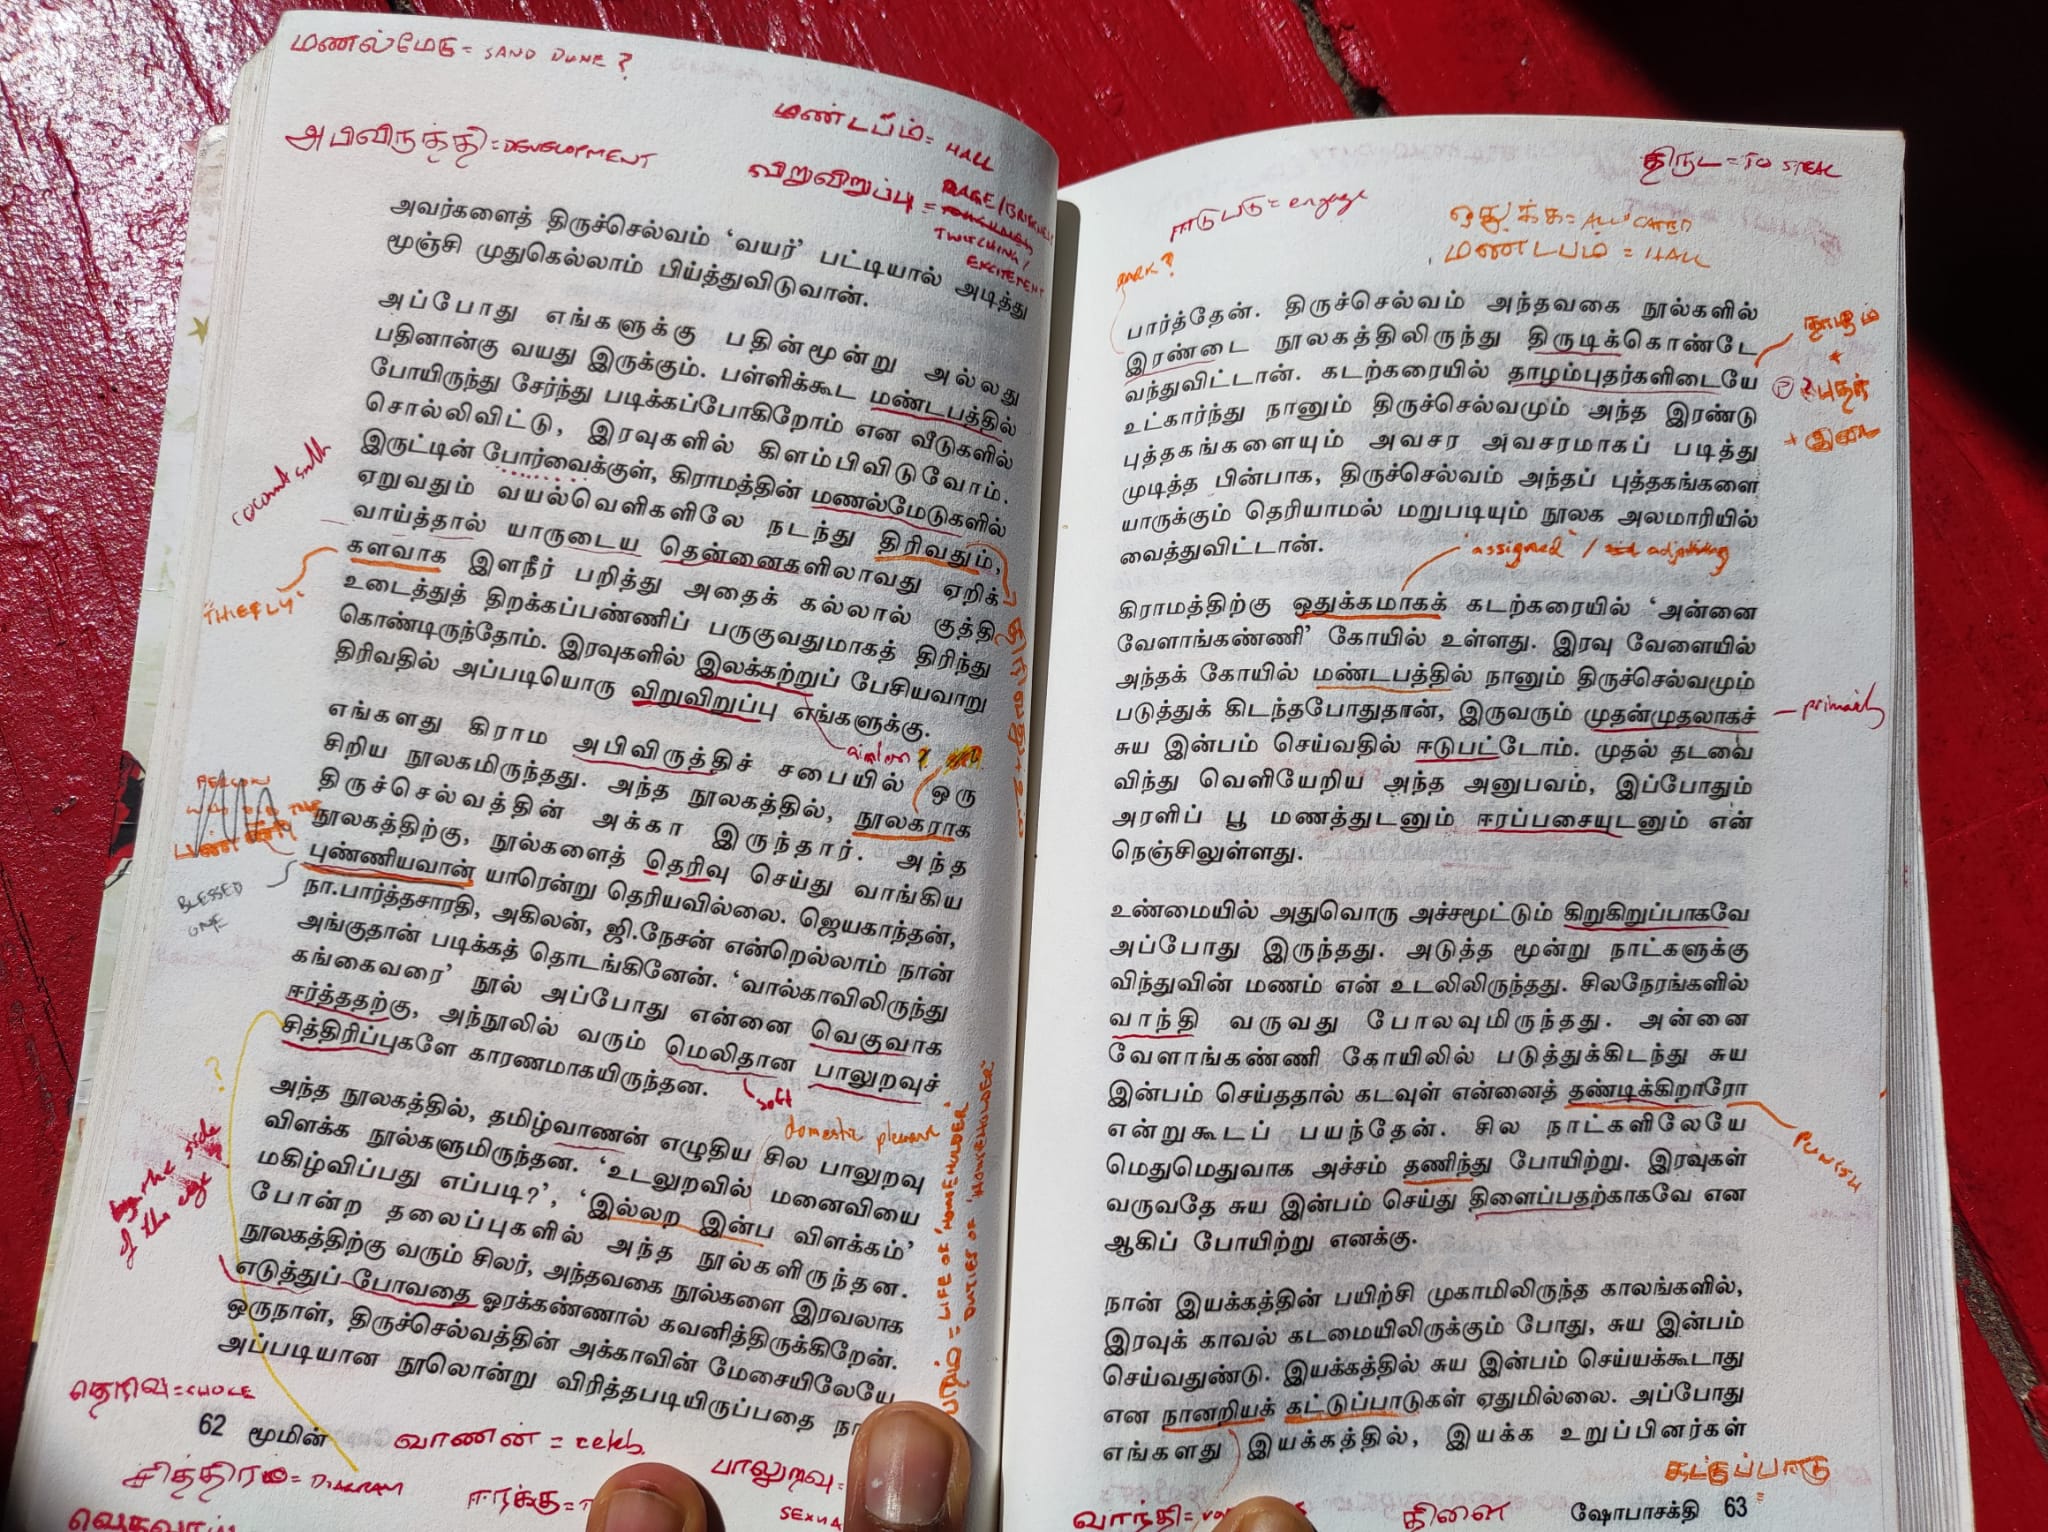 மணல்மேடு = SAND DUNE?
மண்டபம் = HALL
அபிவிருத்தி = DEVELOPMENT
விறுவிறுப்பு = RAGE/BRISKNESS
TWITCHING/
EXCITEMENT
அவர்களைத் திருச்செல்வம் ‘வயர்’ பட்டியால் அடித்து
மூஞ்சி முதுகெல்லாம் பிய்த்துவிடுவான்.
அப்போது எங்களுக்கு பதின்மூன்று அல்லது
பதினான்கு வயது இருக்கும். பள்ளிக்கூட மண்டபத்தில்
போயிருந்து சேர்ந்து படிக்கப்போகிறோம் என வீடுகளில்
சொல்லிவிட்டு, இரவுகளில் கிளம்பிவிடுவோம்.
இருட்டின் போர்வைக்குள், கிராமத்தின் மணல்மேடுகளில்
ஏறுவதும் வயல்வெளிகளிலே நடந்து திரிவதும்,
வாய்த்தால் யாருடைய தென்னைகளிலாவது ஏறிக்
களவாக இளநீர் பறித்து அதைக் கல்லால் குத்தி
உடைத்துத் திறக்கப்பண்ணிப் பருகுவதுமாகத் திரிந்து
கொண்டிருந்தோம். இரவுகளில் இலக்கற்றுப் பேசியவாறு
திரிவதில் அப்படியொரு விறுவிறுப்பு எங்களுக்கு.
"THIEFLY"
எங்களது கிராம அபிவிருத்திச் சபையில் ஒரு
சிறிய நூலகமிருந்தது. அந்த நூலகத்தில், நூலகராக
திருச்செல்வத்தின் அக்கா இருந்தார். அந்த
நூலகத்திற்கு, நூல்களைத் தெரிவு செய்து வாங்கிய
புண்ணியவான் யாரென்று தெரியவில்லை. ஜெயகாந்தன்,
நா.பார்த்தசாரதி, அகிலன், ஜி.நேசன் என்றெல்லாம் நான்
அங்குதான் படிக்கத் தொடங்கினேன். ‘வால்காவிலிருந்து
கங்கைவரை’ நூல் அப்போது என்னை வெகுவாக
ஈர்த்ததற்கு, அந்நூலில் வரும் மெலிதான பாலுறவுச்
சித்திரிப்புகளே காரணமாகயிருந்தன.
BLESSED
ONE
soft
domestic pleasure
அந்த நூலகத்தில், தமிழ்வாணன் எழுதிய சில பாலுறவு
விளக்க நூல்களுமிருந்தன. ‘உடலுறவில் மனைவியை
மகிழ்விப்பது எப்படி?’, ‘இல்லற இன்ப விளக்கம்’
போன்ற தலைப்புகளில் அந்த நூல்களிருந்தன.
நூலகத்திற்கு வரும் சிலர், அந்தவகை நூல்களை இரவலாக
எடுத்துப் போவதை ஓரக்கண்ணால் கவனித்திருக்கிறேன்.
ஒருநாள், திருச்செல்வத்தின் அக்காவின் மேசையிலேயே
அப்படியான நூலொன்று விரித்தபடியிருப்பதை
by the side
of the eye
= LIFE OF 'HOMEHOLDER'
DUTIES OF 'HOUSEHOLDER'
தெரிவு = CHOICE
62 மூமின்
வாணன் = celeb.
பாலுறவு =
சித்திரம் = DIAGRAM
ஈர்க்க =
திருட = TO STEAL
ஈடுபடு = engage
ஒதுக்க = ALLOCATED
மண்டபம் = HALL
பார்த்தேன். திருச்செல்வம் அந்தவகை நூல்களில்
இரண்டை நூலகத்திலிருந்து திருடிக்கொண்டே
வந்துவிட்டான். கடற்கரையில் தாழம்புதர்களிடையே
உட்கார்ந்து நானும் திருச்செல்வமும் அந்த இரண்டு
புத்தகங்களையும் அவசர அவசரமாகப் படித்து
முடித்த பின்பாக, திருச்செல்வம் அந்தப் புத்தகங்களை
யாருக்கும் தெரியாமல் மறுபடியும் நூலக அலமாரியில்
வைத்துவிட்டான்.
"assigned" / adjoining
கிராமத்திற்கு ஒதுக்கமாகக் கடற்கரையில் ‘அன்னை
வேளாங்கண்ணி’ கோயில் உள்ளது. இரவு வேளையில்
அந்தக் கோயில் மண்டபத்தில் நானும் திருச்செல்வமும்
படுத்துக் கிடந்தபோதுதான், இருவரும் முதன்முதலாகச்
சுய இன்பம் செய்வதில் ஈடுபட்டோம். முதல் தடவை
விந்து வெளியேறிய அந்த அனுபவம், இப்போதும்
அரளிப் பூ மணத்துடனும் ஈரப்பசையுடனும் என்
நெஞ்சிலுள்ளது.
primarily
உண்மையில் அதுவொரு அச்சமூட்டும் கிறுகிறுப்பாகவே
அப்போது இருந்தது. அடுத்த மூன்று நாட்களுக்கு
விந்துவின் மணம் என் உடலிலிருந்தது. சிலநேரங்களில்
வாந்தி வருவது போலவுமிருந்தது. அன்னை
வேளாங்கண்ணி கோயிலில் படுத்துக்கிடந்து சுய
இன்பம் செய்ததால் கடவுள் என்னைத் தண்டிக்கிறாரோ
என்றுகூடப் பயந்தேன். சில நாட்களிலேயே
மெதுமெதுவாக அச்சம் தணிந்து போயிற்று. இரவுகள்
வருவதே சுய இன்பம் செய்து திளைப்பதற்காகவே என
ஆகிப் போயிற்று எனக்கு.
PUNISH
நான் இயக்கத்தின் பயிற்சி முகாமிலிருந்த காலங்களில்,
இரவுக் காவல் கடமையிலிருக்கும் போது, சுய இன்பம்
செய்வதுண்டு. இயக்கத்தில் சுய இன்பம் செய்யக்கூடாது
என நானறியக் கட்டுப்பாடுகள் ஏதுமில்லை. அப்போது
எங்களது இயக்கத்தில், இயக்க உறுப்பினர்கள்
கட்டுப்பாடு
வாந்தி =
கிளை
ஷோபாசக்தி 63